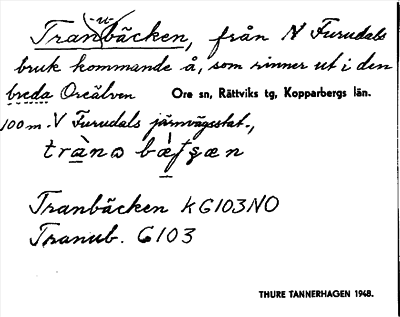 -u-
Tranbäcken, från N Furudals
bruk kommande å, som rinner ut i den
breda Oreälven Ore sn, Rättviks tg, Kopparbergs län.
100 m. V Furudals järnvägsstat.,
Tranbäcken KG103NO
Tranub. G103
THURE TANNERHAGEN 1948.